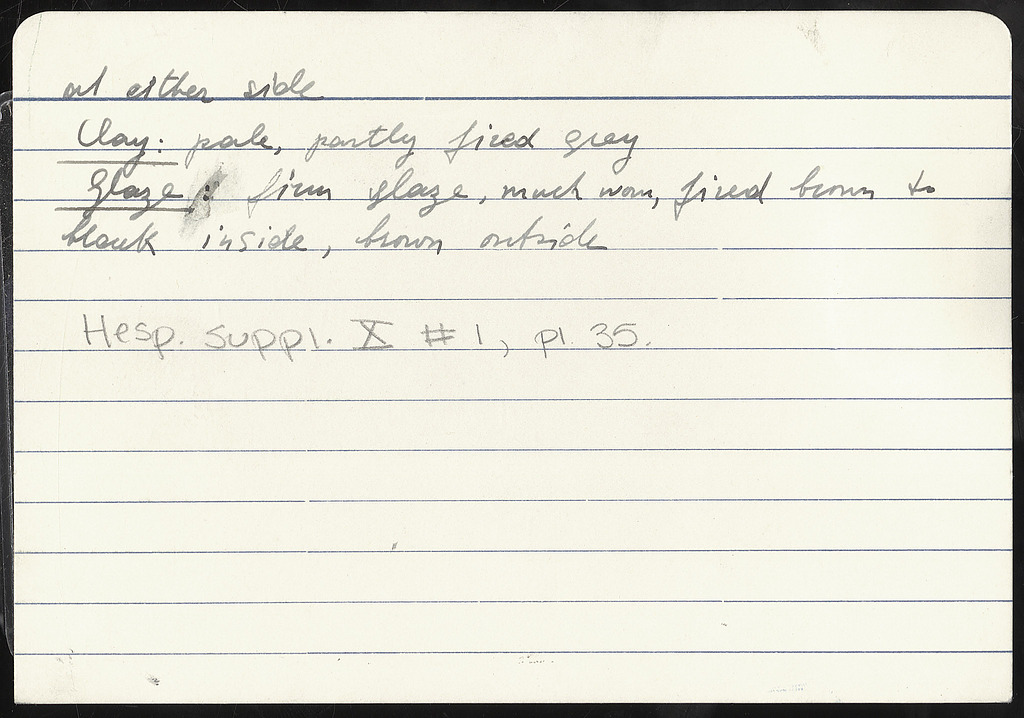 at either side
Clay: pale, partly fired grey
Glaze: firm glaze, much worn, fired brown to
black inside, brown outside
Hesp. Suppl. X # 1, pl. 35.